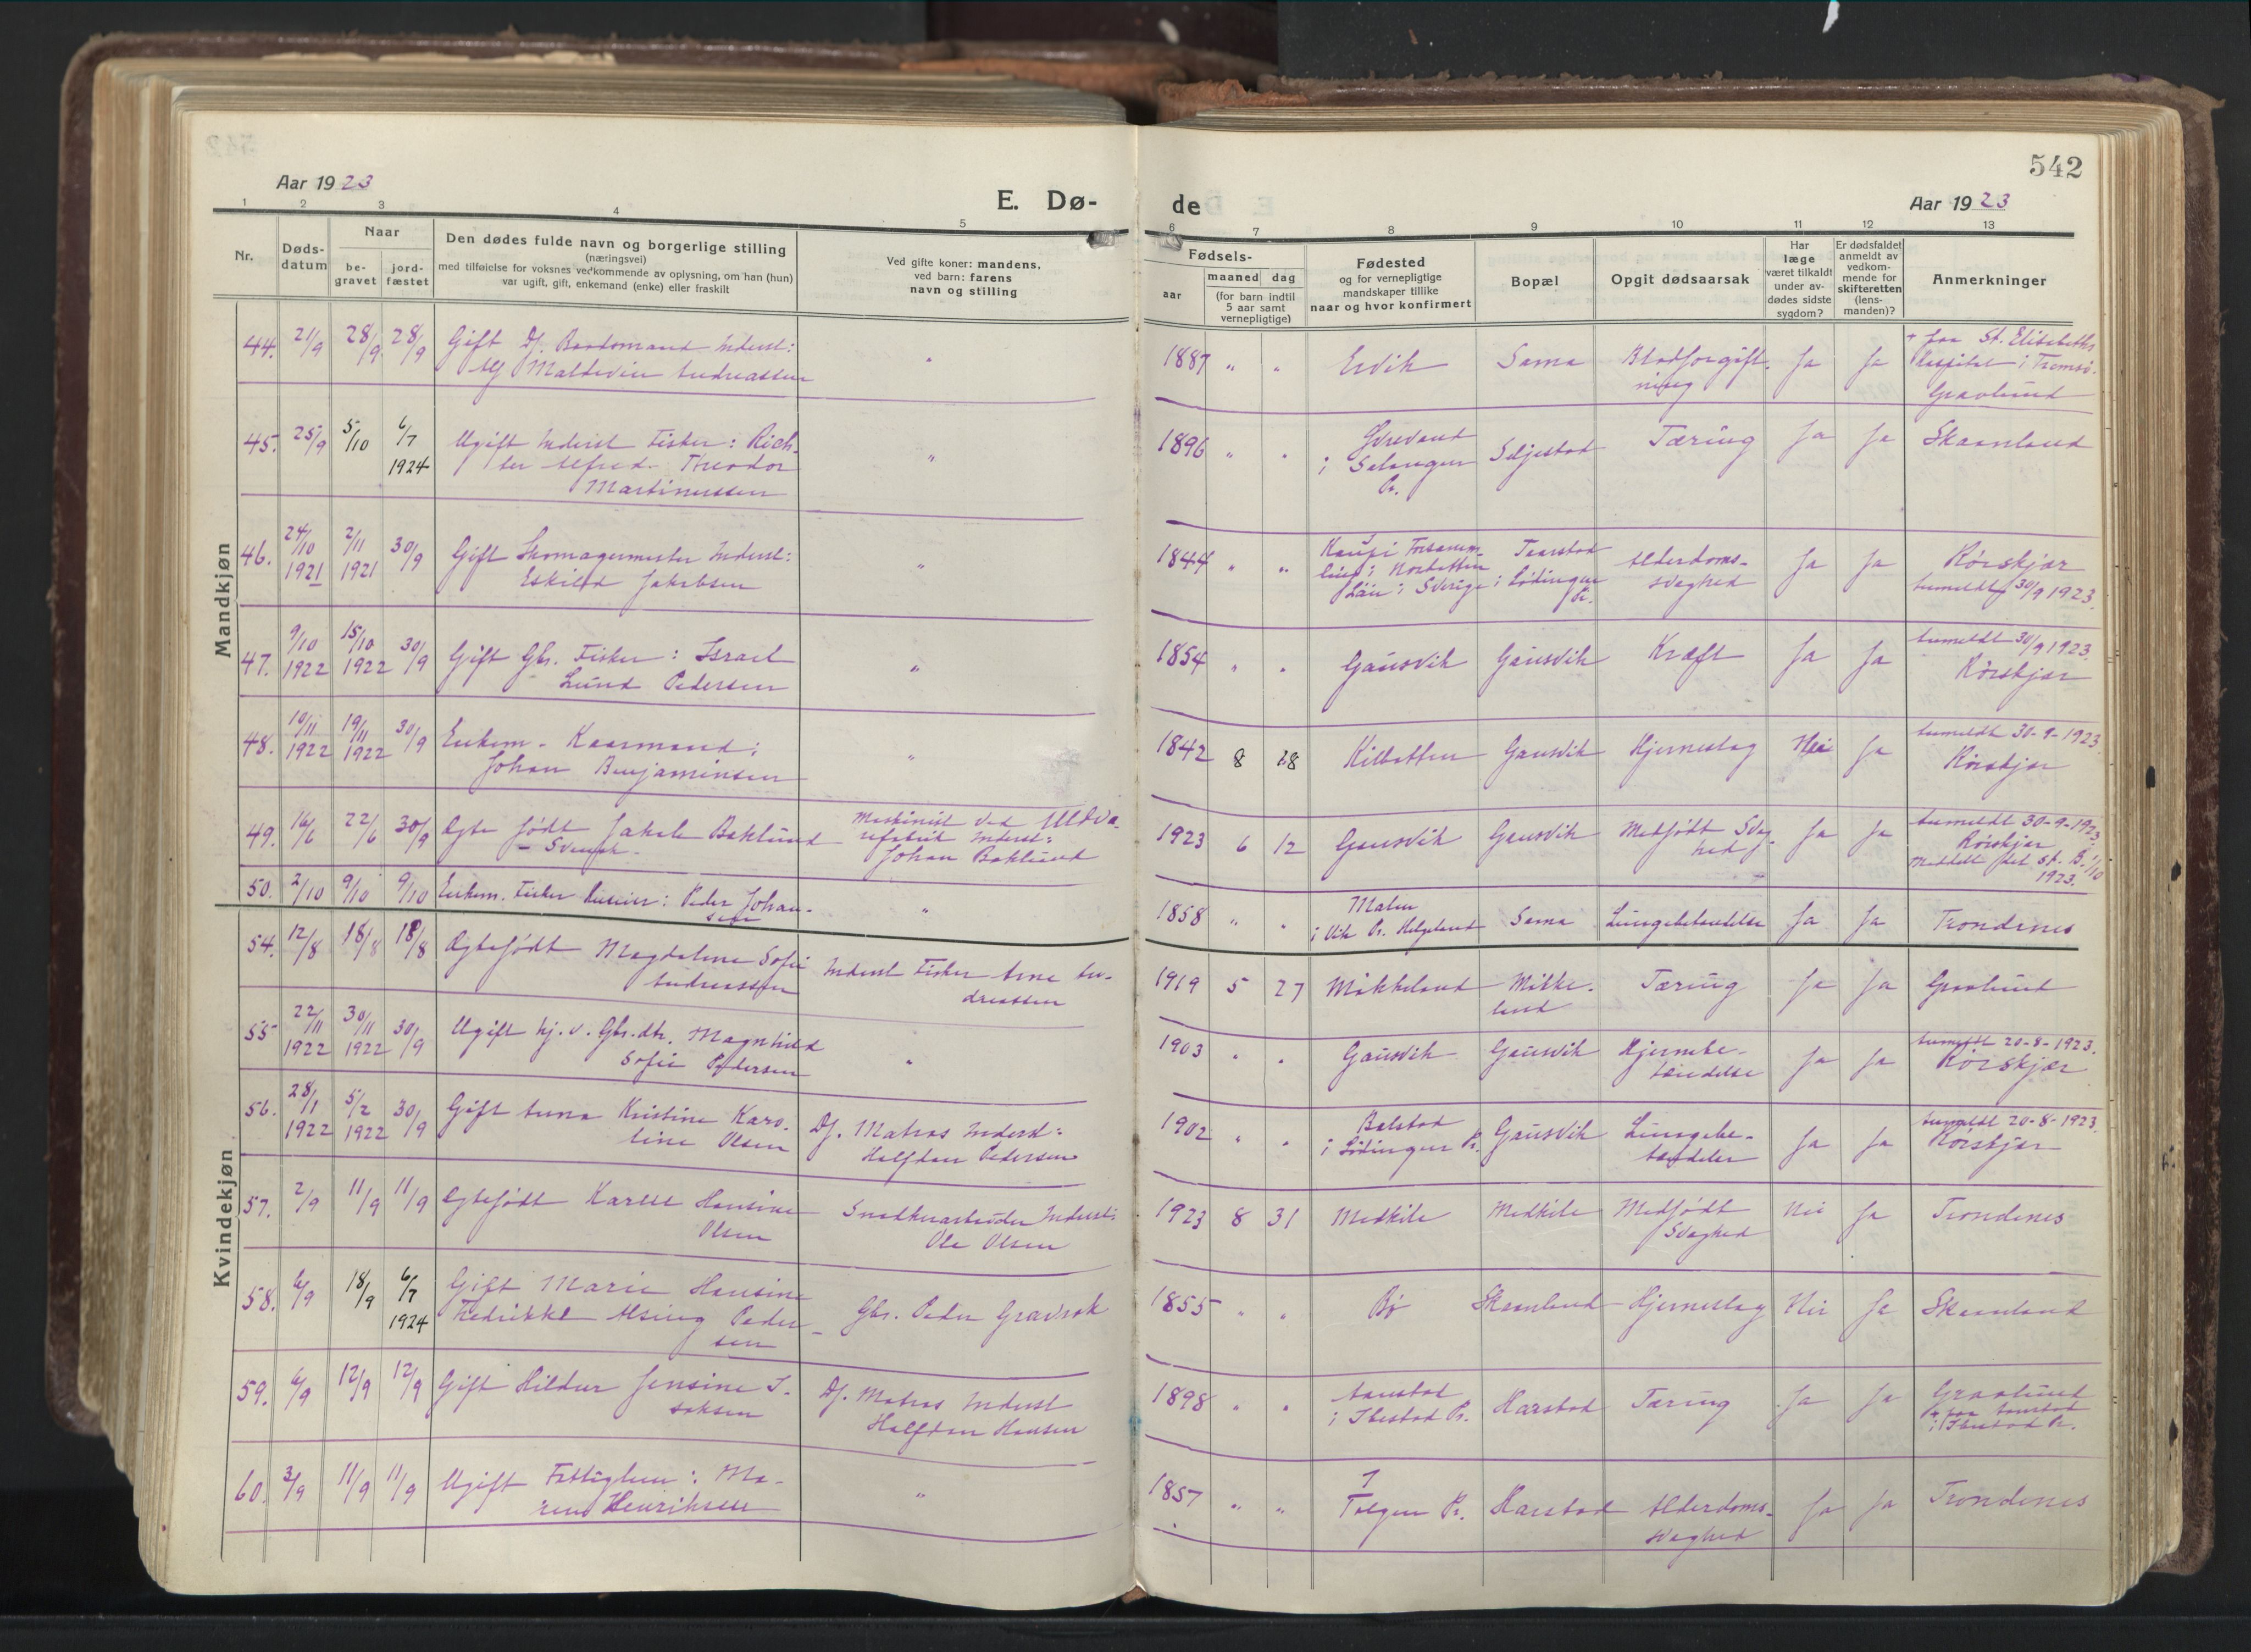 542
Aar 1923
E. Dø-
de
Aar 1923
1 2 3 4 5 6 7 8 9 10 11 12 13
Nr.
Døds-
datum
Naar
be-
gravet
jord-
fæstet
Den dødes fulde navn og borgerlige stilling
(næringsvei)
med tilføielse for voksnes vedkommende av oplysning, om han (hun)
var ugift, gift, enkemand (enke) eller fraskilt
Ved gifte koner: mandens,
ved barn: farens
navn og stilling
Fødsels-
aar
maaned dag
(for barn indtil
5 aar samt
vernepligtige)
Fødested
og for vernepligtige
mandskaper tillike
naar og hvor konfirmert
Bopæl
Opgit dødsaarsak
Har
læge
været tilkaldt
under av-
dødes sidste
sygdom?
Er dødsfaldet
anmeldt av
vedkom-
mende for
skifteretten
(lens-
manden)?
Anmerkninger
Mandkjøn
44. 21/9 28/9 28/9 Gift Inderst:
Andreassen
" 1887 " " Ervik Sama Blodforgift-
ning
Ja Ja + paa St. Elisabeths
hospitel i Tromsø.
Gravlund
45. 25/9 5/10 6/7
1924
Ugift Inderst Fisker: Rich-
Alfred Theodor
Martinussen
" 1896 " "
i Salangen
Pr.
Seljestad Tæring Ja Ja Skaanland
46. 24/10
1921
2/11
1921
30/9 Gift Skomagermester Inderst:
Eskild Jakobsen
" 1844 " "
Län i Sverige
Taarstad
i Lødingen
Pr.
Alderdoms-
svaghed
Ja Ja Rørskjær
Anmeldt 30/9 1923.
47. 9/10
1922
15/10
1922
30/9 Gift Gbr. Fisker: Israel
Lund Pedersen
" 1854 " " Gausvik Gausvik Kræft Ja Ja Anmeldt 30/9 1923.
Rørskjær
48. 10/11
1922
19/11
1922
30/9 Enkem. Kaarmand:
Johan Benjaminsen
" 1842 8 28 Kilbotten Gausvik Hjerneslag Nei Ja Anmeldt 30-9-1923.
Rørskjær
49. 16/6 22/6 30/9 Ægte født Jakob Baklund
- Svensk -
Maskinist ved Uldva-
refabrik Inderst:
Johan Baklund
1923 6 12 Gausvik Gausvik Medfødt Svag-
hed
Ja Ja Anmeldt 30-9-1923.
Rørskjær
Meddelt det st. B. 1/10
1923.
50. 2/10 9/10 9/10 Enkem. Fisker : Peder Johan-
sen
" 1858 " "
i Vik Pr. Helgeland
Sama Lungebetændelse Ja Ja Trondenes
Kvindekjøn
54. 12/8 18/8 18/8 Ægtefødt Magdalene Sofie
Andreassen
Inderst Fisker Arne An-
dreassen
1919 5 27 Møkkeland Møkke-
land
Tæring Ja Ja Gravlund
55 22/11
1922
30/11
1922
30/9 Ugift hj. v. Gbr.dtr. Magnhild
Sofie Pedersen
" 1903 " " Gausvik Gausvik Hjernebe-
tændelse
Ja Ja Anmeldt 20-8-1923.
Rørskjær
56. 28/1
1922
5/2
1922
30/9 Gift Anna Kristine Karo-
line Olsen
Df. Matros Inderst:
Halfdan Pedersen
1902 " " Balstad
i Lødingen Pr.
Gausvik Lungebe-
tændelse
Ja Ja Anmeldt 20-8-1923.
Rørskjær
57. 2/9 11/9 11/9 Ægtefødt Hansine
Olsen
Snedkerarbeider Inderst:
Ole Olsen
1923 8 31 Medkile Medkile Medfødt
Svaghed
Nei Ja Trondenes
58. 6/9 18/9 6/7
1924
Gift Marie Hansine
Fredrikke Alsing Peder-
sen
Gbr. Peder Gravrok
1855 " " Bø Skaanland Hjerneslag Nei Ja Skaanland
59. 6/9 12/9 12/9 Gift Hildur Jensine I-
saksen
Df. Matros Inderst
Halfdan Hansen
1898 " "
i Ibestad Pr.
Harstad Tæring Ja Ja Gravlund
+ paa
i Ibestad Pr.
60. 3/9 11/9 11/9 Ugift Fattiglem: Ma-
ren Henriksen
" 1857 " "
Tolgen Pr. Harstad Alderdoms-
svaghed
Ja Ja Trondenes